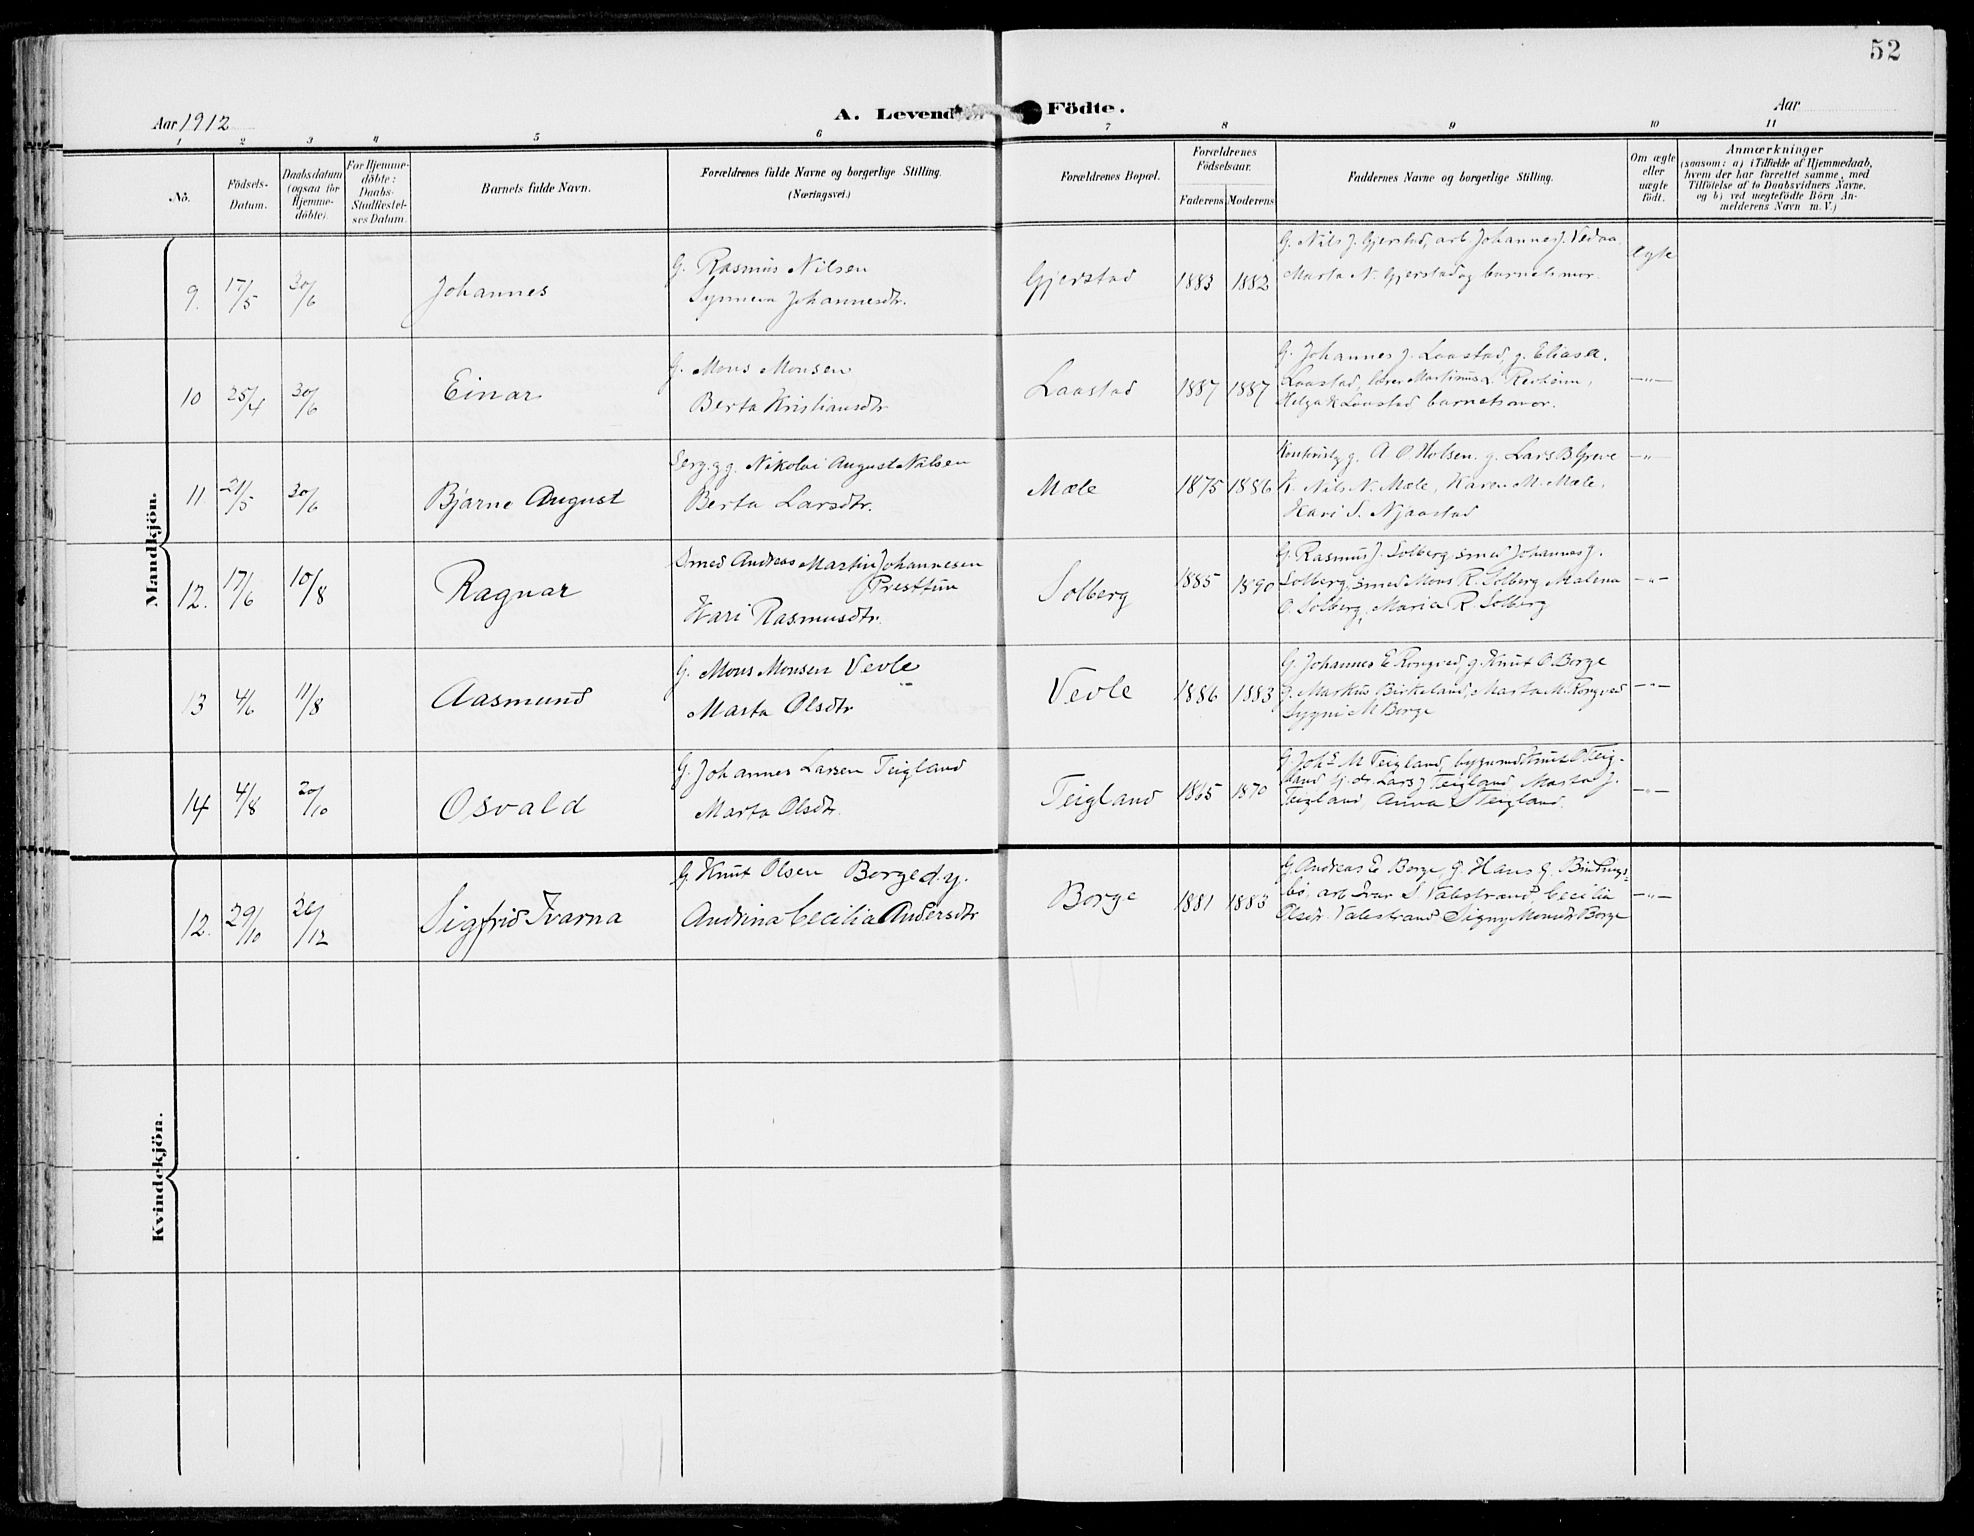 52
Aar 1912
A. Levende Födte.
Aar
1 2 3 4 5 6 7 8 9 10 11
No.
Födsels-
Datum.
Daabsdatum
(ogsaa for
Hjemme-
döbte).
For Hjemme-
döbte:
Daabs-
Stadfæstel-
ses Datum.
Barnets fulde Navn.
Forældrenes fulde Navne og borgerlige Stilling.
(Næringsvei.)
Forældrenes Bopæl.
Forældrenes
Födselsaar.
Faderens Moderens
Faddernes Navne og borgerlige Stilling.
Om ægte
eller
uægte
födt.
Anmærkninger
(saasom: a) i Tilfælde af Hjemmedaab,
hvem der har forrettet samme, med
Tilföielse af to Daabsvidners Navne,
og b) ved uægtefödte Börn An-
melderens Navn m. V.)
Mandkjön.
9. 17/5 30/6 Johannes
G. Rasmus Nilsen
Synneva Johannesdtr.
Gjerstad 1883 1882
G. Nils J. Gjerstad, arb Johannes J. Vedaa,
Marta N. Gjerstad og barnets mor.
Egte
10 25/4 30/6 Einar
G. Mons Monsen
Berta Kristiansdtr
Laastad 1887 1887
G. Johannes J. Laastad, g. Elias A.
Laastad, lærer Martinus L.
Helga K Laastad barnets mor.
—"—
11 21/5 30/6 Bjarne August
Serg. g g. Nikolai August Nilsen
Berta Larsdtr.
Mæle 1875 1886
g. A O Holsen. g. Lars B Greve
K. Nils N. Mæle, Karen M. Mæle,
Kari S. Njaastad
—"—
12. 17/6 10/8 Ragnar
Smed Andreas Martin Johannesen
Presttun
Kari Rasmusdtr.
Solberg 1885 1890
G. Rasmus J. Solberg, smed Johannes J.
Solberg, smed Mons R. Solberg Malena
O. Solberg, Maria R. Solberg
—"—
13 4/6 11/8 Aasmund
G. Mons Monsen Vevle
Marta Olsdtr
Vevle 1886 1883
G. Johannes E Rongved, g. Knut O. Borge
g. Markus Birkeland, Marta M. Rongved
Sygni M Borge
—"—
14 4/8 20/10 Osvald
G. Johannes Larsen Teigland
Marta Olsdtr
Teigland 1865 1870
G. Johs M Teigland, bygnmd Knut O Teig-
land Gj. dr. Lars J Teigland Marta J.
Teigland, Anna J Teigland.
—"—
Kvindekjön.
12. 29/10 26/12 Sigfrid Ivarna
G. Knut Olsen Borge d.y.
Andrina Cecilia Andersdtr
Borge 1881 1883
G. Andreas E Borge, g. Hans G.
arb Ivar S. Valestrand, Cecilia
Olsdtr. Valestrand Signy Monsdtr Borge
—"—